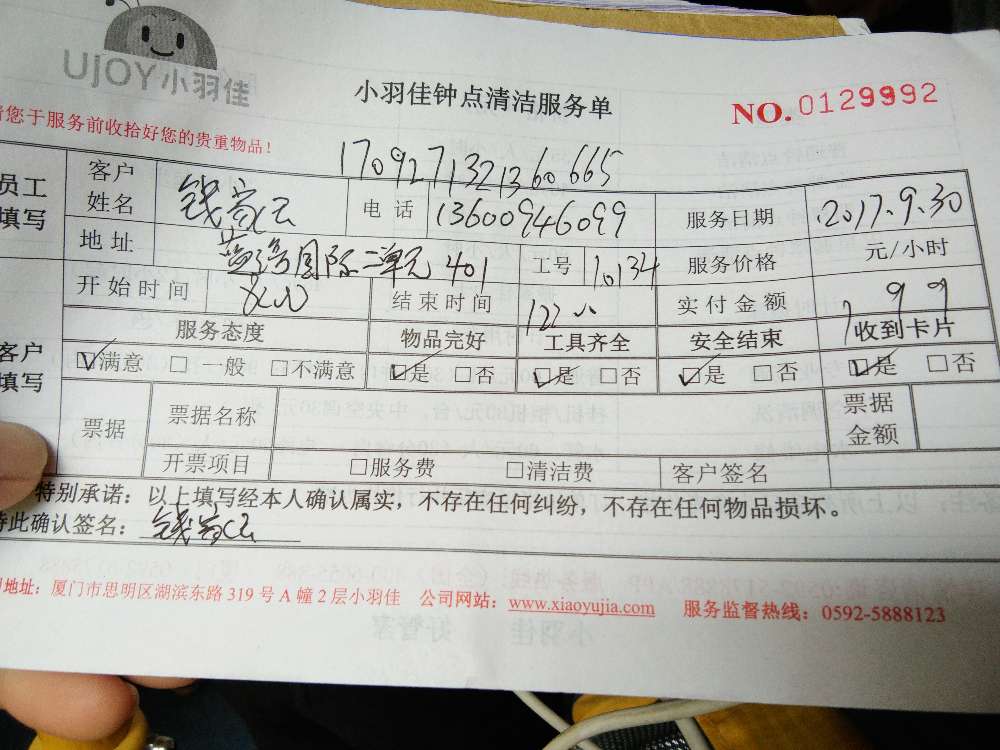 UJOY小羽佳
小羽佳钟点清洁服务单
NO.0129992
您于服务前收拾好您的贵重物品！
1709271321360665
员工填写 客户姓名 钱 电话 13600946099 服务日期 2017.9.30
地址 国际二单元401 工号 10134 服务价格 元/小时
开始时间 结束时间 实付金额 99
客户填写 服务态度 物品完好 工具齐全 安全结束 收到卡片
☑满意 □一般 □不满意 ☑是 □否 ☑是 □否 ☑是 □否 ☑是 □否
票据 票据名称 票据金额
开票项目 □服务费 □清洁费 客户签名
特别承诺：以上填写经本人确认属实，不存在任何纠纷，不存在任何物品损坏。
此确认签名：钱
地址：厦门市思明区湖滨东路319号A幢2层小羽佳 公司网站：www.xiaoyujia.com 服务监督热线：0592-5888123